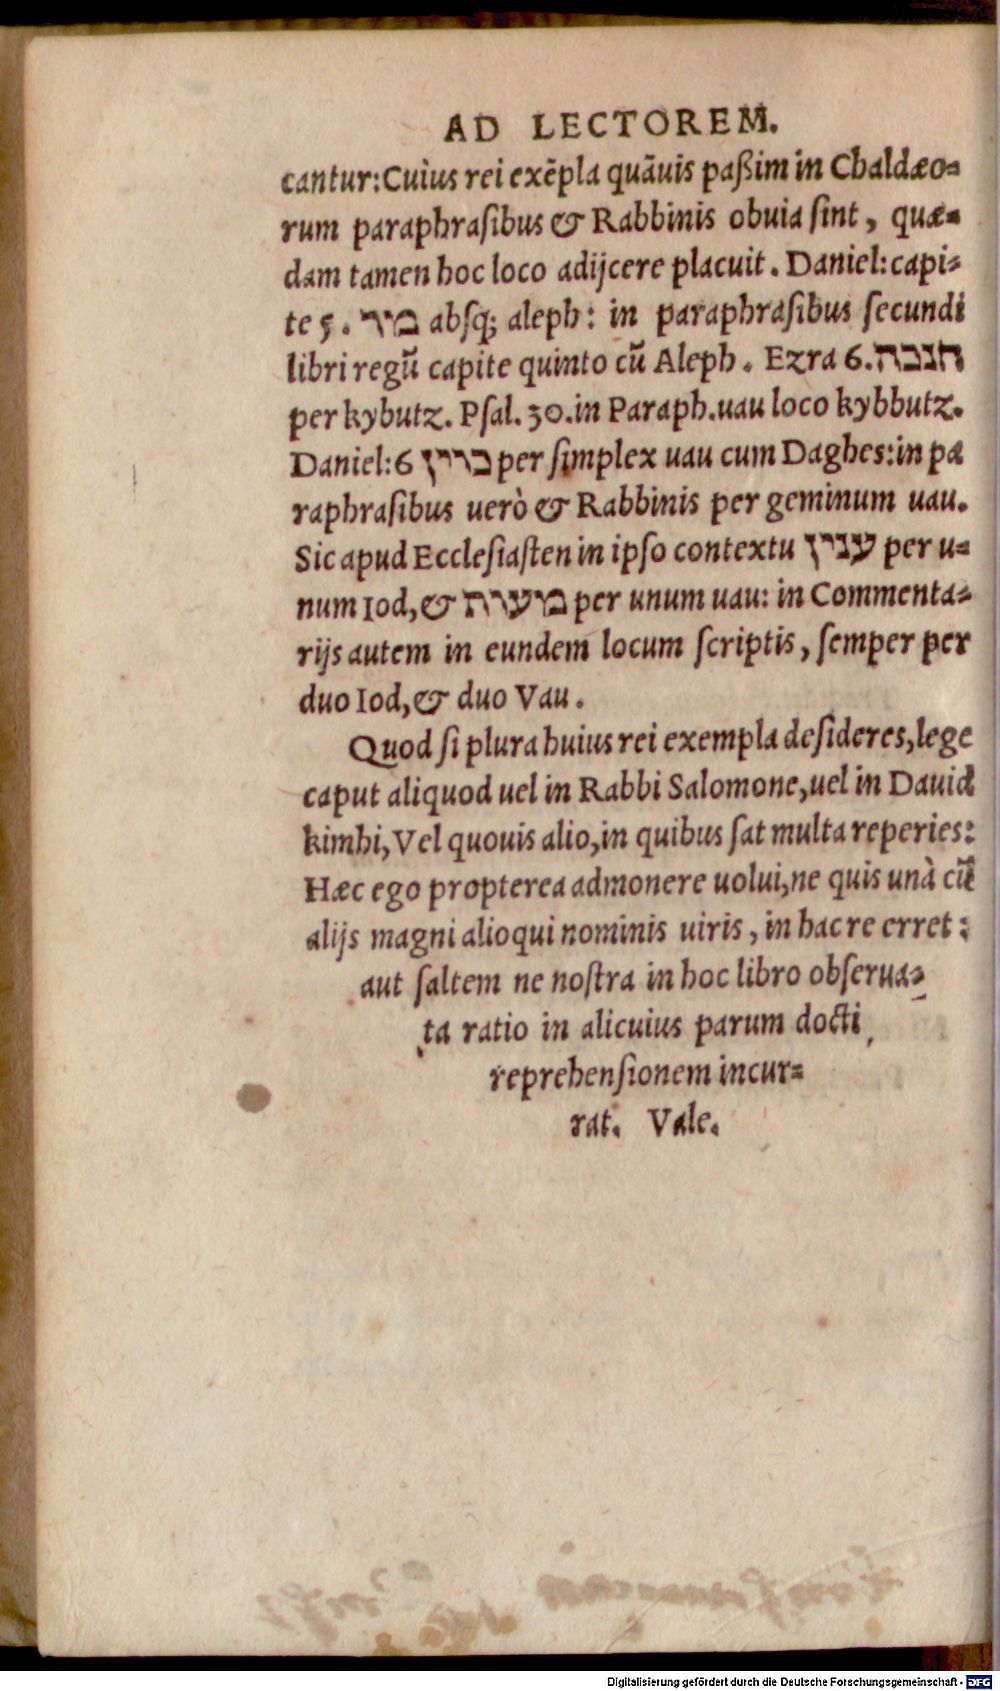 AD LECTOREM.
cantur: Cuius rei exẽpla quãuis paßim in Chaldæo-
rum paraphraſibus & Rabbinis obuia ſint, quæ-
dam tamen hoc loco adijcere placuit. Daniel: capi-
te 5. מרי abſq; aleph: in paraphraſibus ſecundi
libri regũ capite quinto cũ Aleph. Ezra 6. חנכה
per kybutz. Pſal. 30. in Paraph. uau loco kybbutz.
Daniel: 6 כוין per ſimplex uau cum Dagheſ: in pa
raphraſibus uerò & Rabbinis per geminum uau.
Sic apud Eccleſiaſten in ipſo contextu ענין per u-
num Iod, & מעות per unum uau: in Commenta-
rijs autem in eundem locum ſcriptis, ſemper per
duo Iod, & duo Vau.
Quod ſi plura huius rei exempla deſideres, lege
caput aliquod uel in Rabbi Salomone, uel in Dauid
kimhi, Vel quouis alio, in quibus ſat multa reperies:
Hæc ego propterea admonere uolui, ne quis unà cũ
alijs magni alioqui nominis uiris, in hac re erret:
aut ſaltem ne noſtra in hoc libro obſerua-
ta ratio in alicuius parum docti
reprehenſionem incur-
rat. Vale.
Digitalisierung gefördert durch die Deutsche Forschungsgemeinschaft - DFG